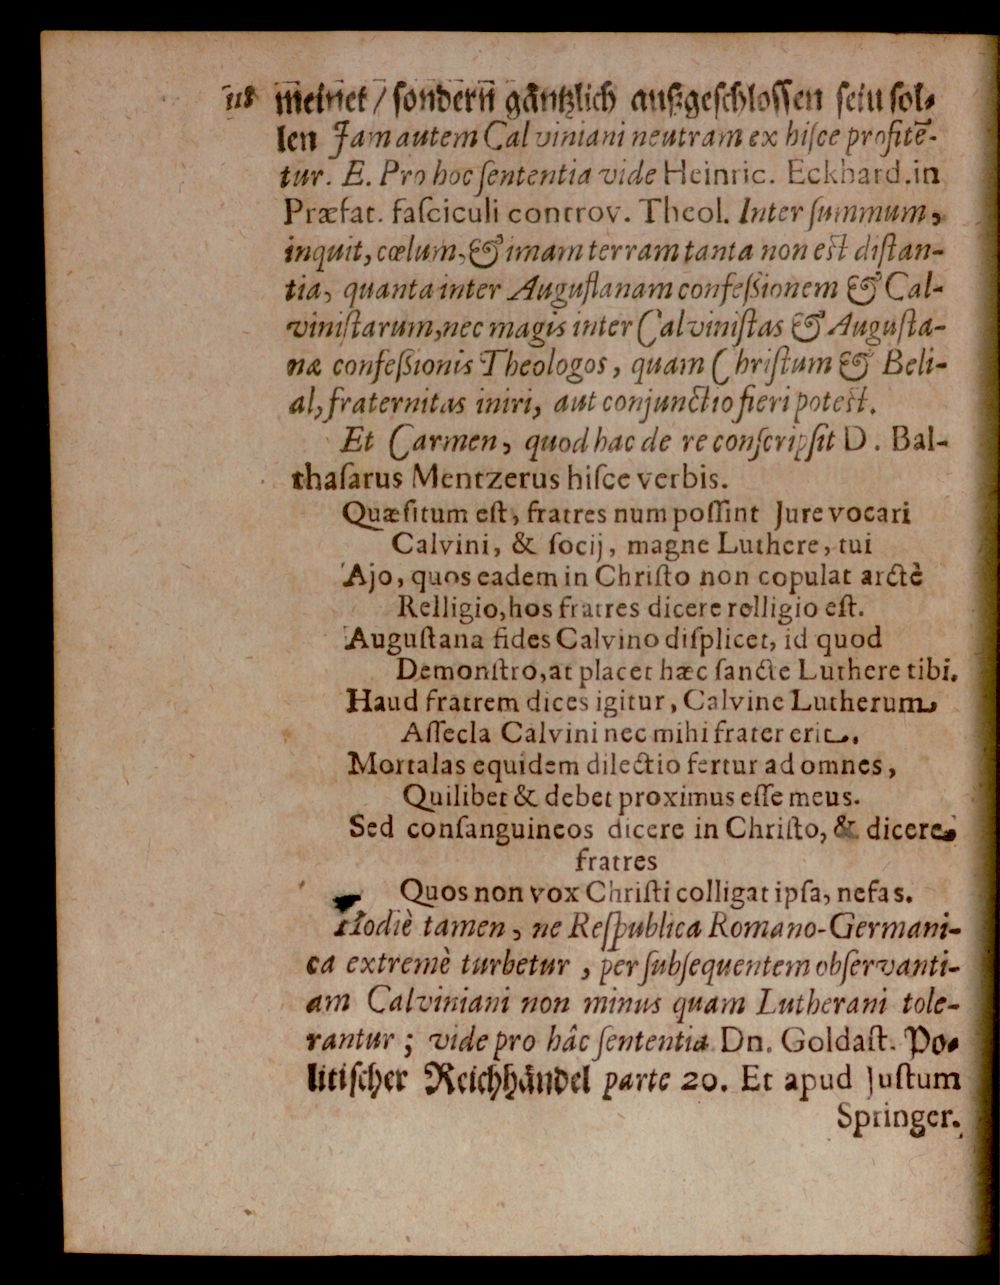 meinet / sondern gäntzlich außgeschlossen sein sol-
len Jam autem Calviniani neutram ex hiſce profitē-
tur. E. Pro hoc ſententia vide Heinric. Eckhard. in
Præfat. faſciculi controv. Theol. Inter ſummum,
inquit, cœlum, & imam terram tanta non eſt diſtan-
tia, quanta inter Auguſtanam confeßionem & Cal-
viniſtarum, nec magis inter Calviniſtas & Auguſta-
næ confeßionis Theologos, quam Chriſtum & Beli-
al, fraternitas iniri, aut conjunctio fieri poteſt.
Et Carmen, quod hac de re conſcripſit D. Bal-
thaſarus Mentzerus hiſce verbis.
Quæſitum eſt, fratres num poſſint Jure vocari
Calvini, & ſocij, magne Luthere, tui
Ajo, quos eadem in Chriſto non copulat arctè
Relligio, hos fratres dicere relligio eſt.
Auguſtana fides Calvino diſplicet, id quod
Demonſtro, at placet hæc ſancte Luthere tibi.
Haud fratrem dices igitur, Calvine Lutherum,
Aſſecla Calvini nec mihi frater erit.
Mortalas equidem dilectio fertur ad omnes,
Quilibet & debet proximus eſſe meus.
Sed conſanguineos dicere in Chriſto, & dicere
fratres
Quos non vox Chriſti colligat ipſa, nefas.
Hodiè tamen, ne Reſpublica Romano-Germani-
ca extremè turbetur, per ſubſequentem obſervanti-
am Calviniani non minus quam Lutherani tole-
rantur; vide pro hâc ſententia Dn. Goldaſt. Po-
litiſcher Reichhändel parte 20. Et apud Juſtum
Springer.